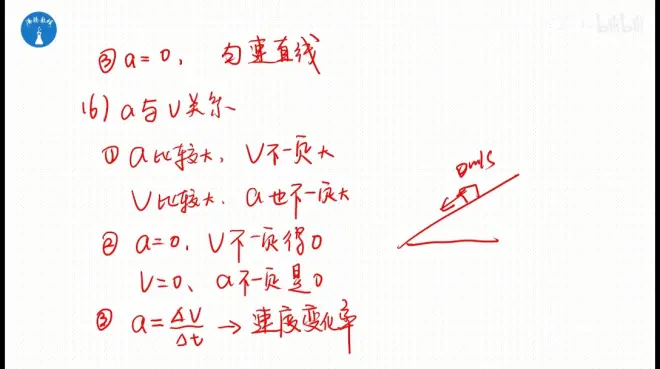 bilibili
③ a=0, 匀速直线
(6) a与V关系
① a比较大, V不一定大
V比较大, a也不一定大
0m/s
② a=0, V不一定得0
V=0、a不一定是0
③ a=ΔV/Δt → 速度变化率